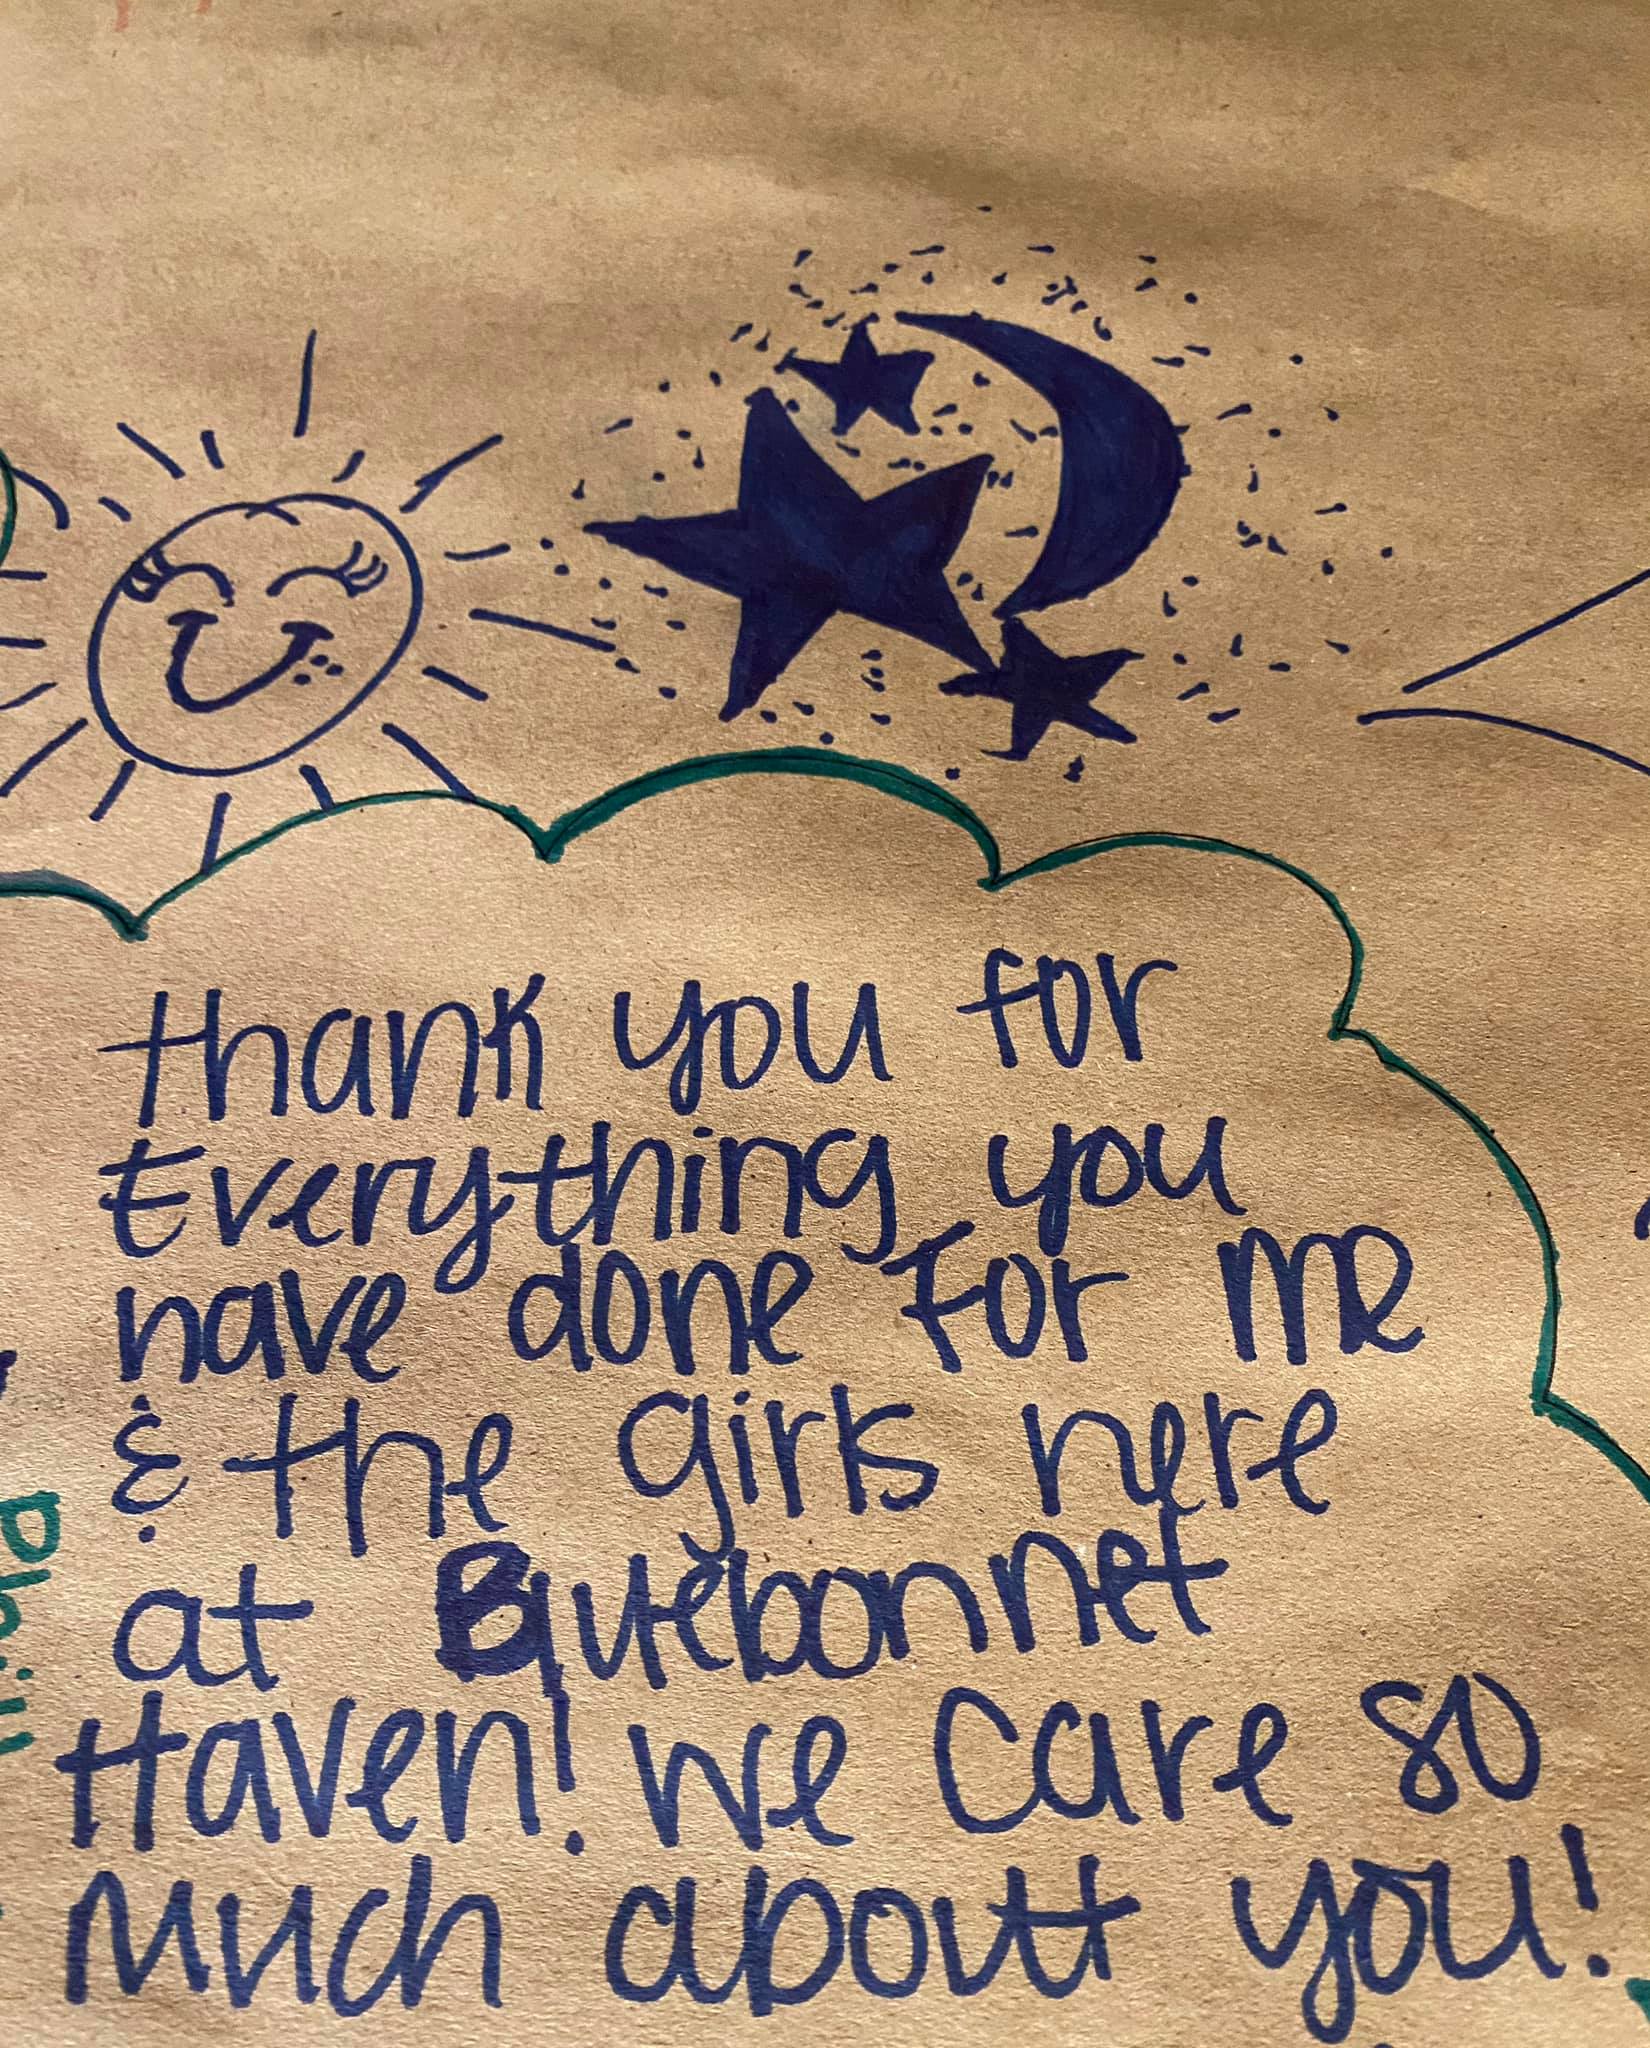 thank you for
Everything you
have done For me
& the girls here
at Bluebonnet
Haven! we Care so
much about you!
Phill